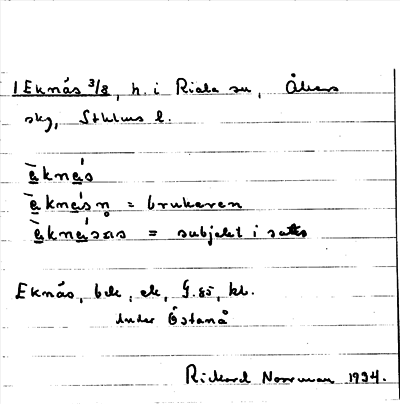 1 Eknäs 3/8, h. i Riala sn, Åkers
skg, Sthlms l.
èknä́s
èknä́sn = brukaren
èknä́sas = subjekt i sats
Eknäs, bek, ek, G.85, kb.
under Östanå
Rickard Norrman 1934.